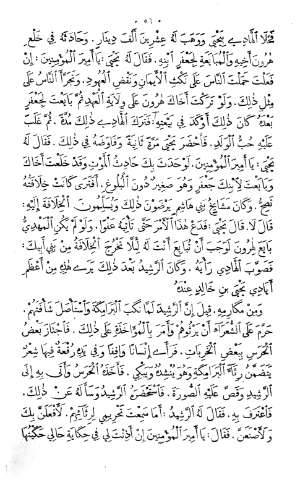 ٥٦
فخلا الهادي بيحيى ووهب له عشرين ألف دينار. وحادثه في خلع
هرون أخيه والمبايعة لجعفر ابنه. فقال له يحيى: يا أمير المؤمنين. إن
فعلت حملت الناس على نكث الأيمان ونقض العهود. وتجرأ الناس على
مثل ذلك. ولو تركت أخاك هرون على ولاية العهد ثم بايعت لجعفر
بعده كان ذلك أوكد في بيعته. فترك الهادي ذلك مدة. ثم غلب
عليه حب الولد. فأحضر يحيى مرة ثانية وفاوضه في ذلك. فقال له
يحيى: يا أمير المؤمنين. لو حدث بك حادث الموت وقد خلعت أخاك
وبايعت لابنك جعفر وهو صغير دون البلوغ. أفترى كانت خلافته
تصح. وكان مشايخ بني هاشم يرضون ذلك ويسلمون الخلافة إليه:
قال لا. قال يحيى: فدع هذا الأمر حتى تأتيه عفوا. ولو لم يكن المهدي
بايع لهرون لوجب أن تبايع أنت له لئلا تخرج الخلافة من بني أبيك.
فصوب الهادي رأيه. وكان الرشيد بعد ذلك يرى هذه من أعظم
أيادي يحيى بن خالد عنده
ومن مكارمه. قيل إن الرشيد لما نكب البرامكة واستأصل شأفتهم.
حرم على الشعراء أن يرثوهم وأمر بالمؤاخذة على ذلك. فاجتاز بعض
الحرس ببعض الخربات. فرأى إنسانا واقفا وفي يده رقعة فيها شعر
يتضمن رثاء البرامكة وهو ينشده ويبكي. فأخذه الحرس وأتى به إلى
الرشيد وقص عليه الصورة. فاستحضره الرشيد وسأله عن ذلك.
فاعترف به. فقال له الرشيد: أما سمعت تحريمي لرثائهم. لأفعلن بك
ولأصنعن. فقال: يا أمير المؤمنين إن أذنت لي في حكاية حالي حكيتها